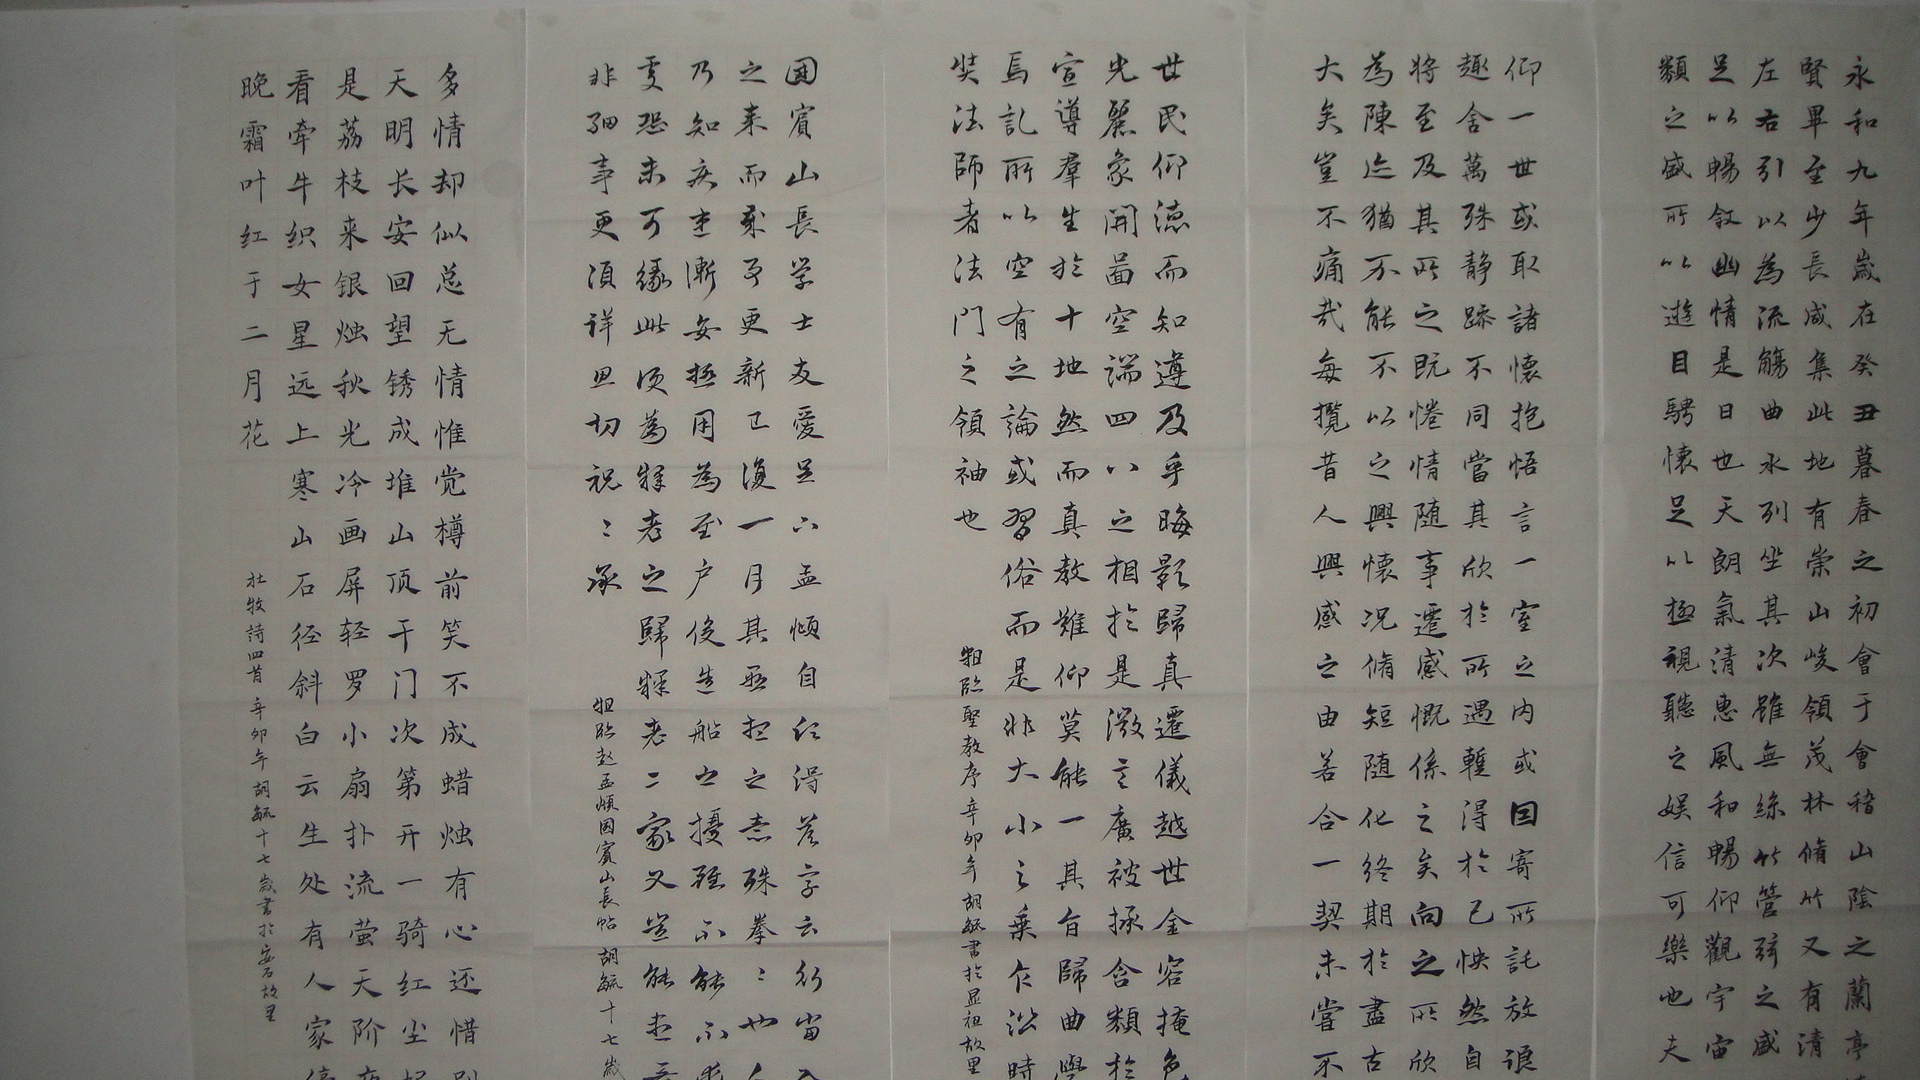 永和九年歲在癸丑暮春之初會于會稽山陰之蘭亭
賢畢至少長咸集此地有崇山峻領茂林脩竹又有清
左右引以為流觴曲水列坐其次雖無絲竹管弦之盛
足以暢敘幽情是日也天朗氣清惠風和暢仰觀宇宙
類之盛所以遊目騁懷足以極視聽之娛信可樂也夫
仰一世或取諸懷抱悟言一室之內或因寄所託放浪
趣舍萬殊静躁不同當其欣於所遇暫得於己快然自
將至及其所之既惓情随事遷感慨係之矣向之所欣
為陳迹猶不能不以之興懷況脩短随化終期於盡古
大矣豈不痛哉每攬昔人興感之由若合一契未嘗不
世民仰德而知遵及乎晦影歸真遷儀越世金容掩色
光麗象開圖空端四八之相於是微言廣被拯含類於
宣導羣生於十地然而真教難仰莫能一其旨歸曲學
焉訛所以空有之論或習俗而是非大小之乘乍沿時
奘法師者法門之領袖也
粗臨聖教序辛卯年胡毓書於显祖故里
國賓山長学士友愛足下孟頫自得答字云行當入
之来而歲更新已復一月其想之意殊拳〻也
乃知疾患漸安極用為至户役造船之擾雖不能不
更恐未可緣此须為釋老之歸釋老二家又豈能
非細事更須詳思切祝〻承
粗臨赵孟頫國賓山長帖胡毓十七歲
多情却似总无情惟觉樽前笑不成蜡烛有心还惜别
天明长安回望锈成堆山顶千门次第开一骑红尘妃
是荔枝来银烛秋光冷画屏轻罗小扇扑流萤天阶夜
看牵牛织女星远上寒山石径斜白云生处有人家停
晚霜叶红于二月花
杜牧詩四首辛卯年胡毓十七歲書於安石故里